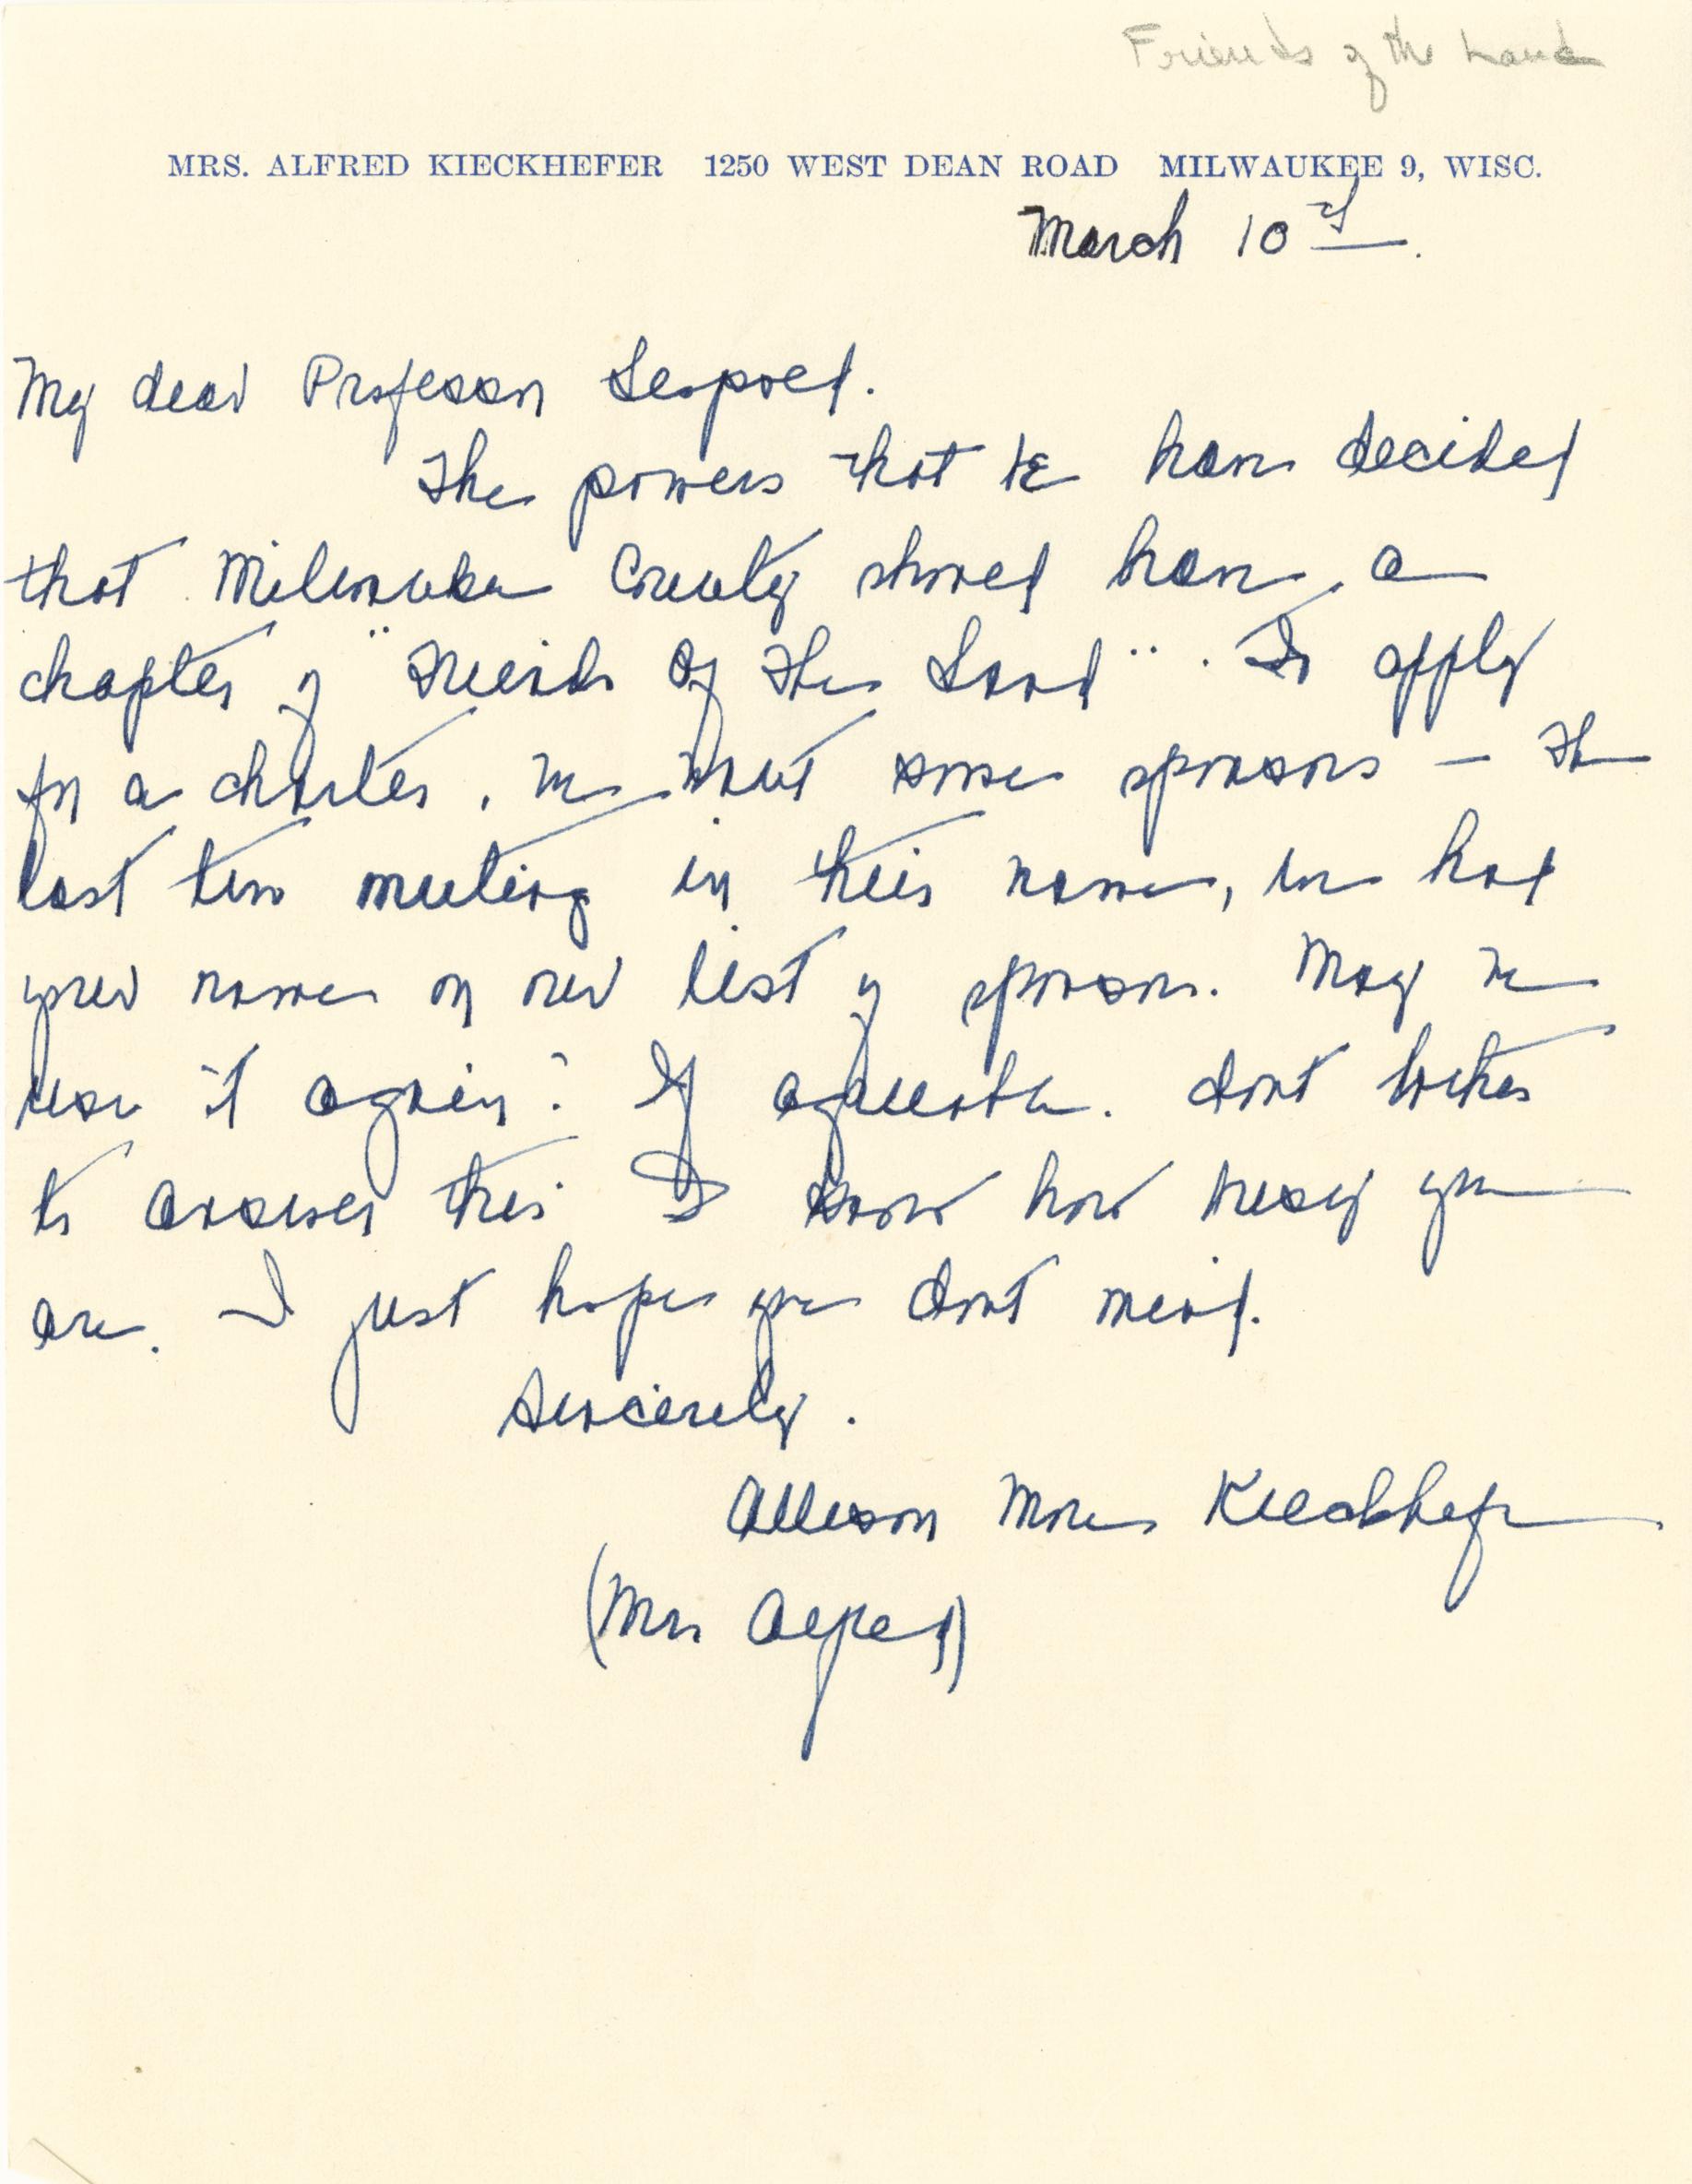 Friends of the Land
MRS. ALFRED KIECKHEFER 1250 WEST DEAN ROAD MILWAUKEE 9, WISC.
March 10th.
My dear Professor Leopold.
The powers that be have decided
that Milwaukee County should have a
chapter of "Friends Of The Land". To apply
for a charter, we want some sponsors - The
last time meeting in their name, we had
your name on our list of sponsors. May we
use it again? If agreeable. dont bother
to answer this I know how busy you
are. I just hope you dont mind.
Sincerely.
Allison More Kieckhefer
(Mrs Alfred)